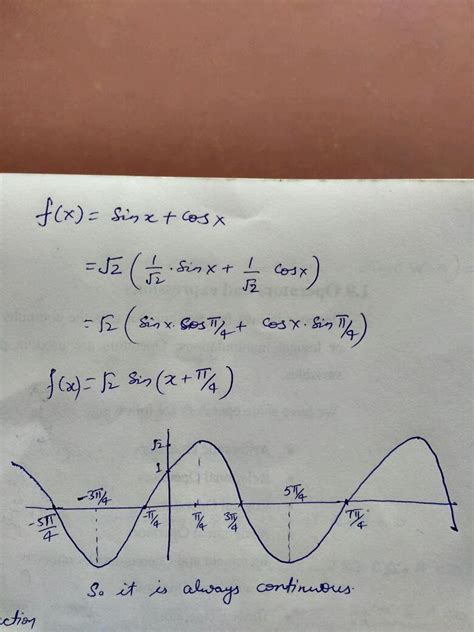 f(x) = Sinx + Cosx
= √2 ( 1/√2 · Sinx + 1/√2 Cosx )
= √2 ( Sinx. Cosπ/4 + Cosx. Sin π/4 )
f(x) = √2 Sin(x + π/4)
√2
1
-5π/4 -3π/4 -π/4 π/4 3π/4 5π/4 7π/4
So it is always continuous.
ction